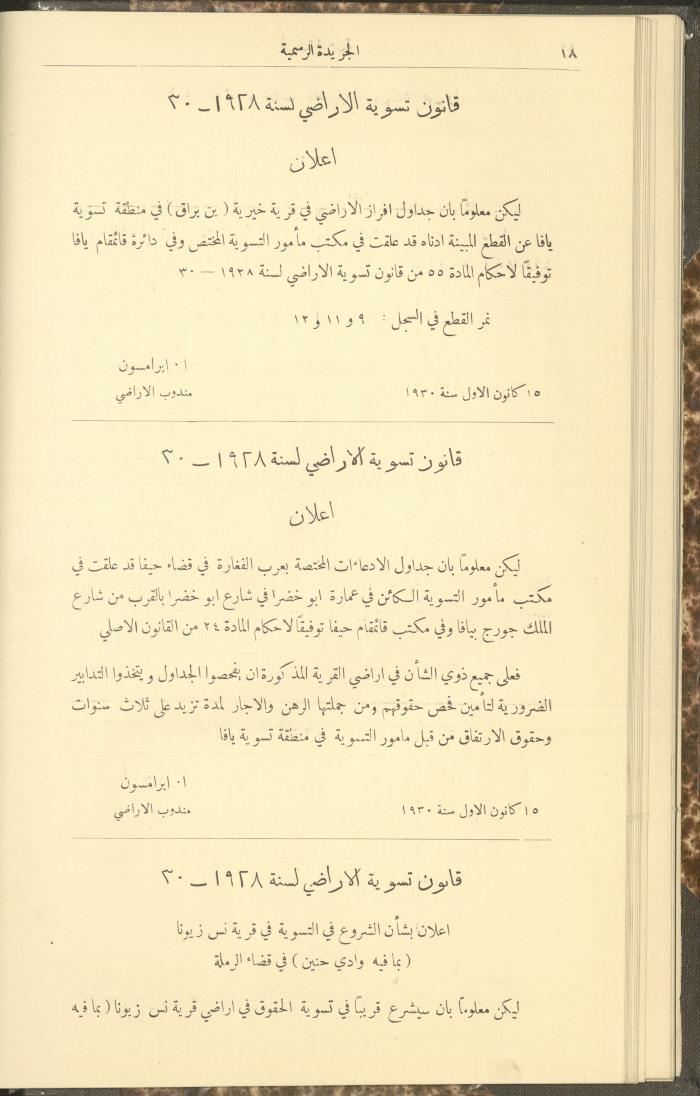 ١٨
الجريدة الرسمية
قانون تسوية الاراضي لسنة ١٩٢٨ـ٣٠
اعلان
ليكن معلومًا بان جداول افراز الاراضي في قرية خيرية (بن براق) في منطقة تسوية
يافا عن القطع المبينة ادناه قد علقت في مكتب مأمور التسوية المختص وفي دائرة قائمقام يافا
توفيقًا لاحكام المادة ٥٥ من قانون تسوية الاراضي لسنة ١٩٢٨ — ٣٠
نمر القطع في السجل: ٩ و ١١ و ١٢
ا٠ ابرامسون
١٥ كانون الاول سنة ١٩٣٠ مندوب الاراضي
قانون تسوية الاراضي لسنة ١٩٢٨ـ٣٠
اعلان
ليكن معلومًا بان جداول الادعاءات المختصة بعرب الفغارة في قضاء حيفا قد علقت في
مكتب مأمور التسوية الكائن في عمارة ابو خضرا في شارع ابو خضرا بالقرب من شارع
الملك جورج بيافا وفي مكتب قائمقام حيفا توفيقًا لاحكام المادة ٢٤ من القانون الاصلي
فعلى جميع ذوي الشأن في اراضي القرية المذكورة ان يفحصوا الجداول ويتخذوا التدابير
الضرورية لتأمين فحص حقوقهم ومن جملتها الرهن والاجار لمدة تزيد على ثلاث سنوات
وحقوق الارتفاق من قبل مامور التسوية في منطقة تسوية يافا
ا٠ ابرامسون
١٥ كانون الاول سنة ١٩٣٠ مندوب الاراضي
قانون تسوية الاراضي لسنة ١٩٢٨ـ٣٠
اعلان بشأن الشروع في التسوية في قرية نس زيونا
(بما فيه وادي حنين) في قضاء الرملة
ليكن معلومًا بان سيشرع قريبًا في تسوية الحقوق في اراضي قرية نس زيونا (بما فيه